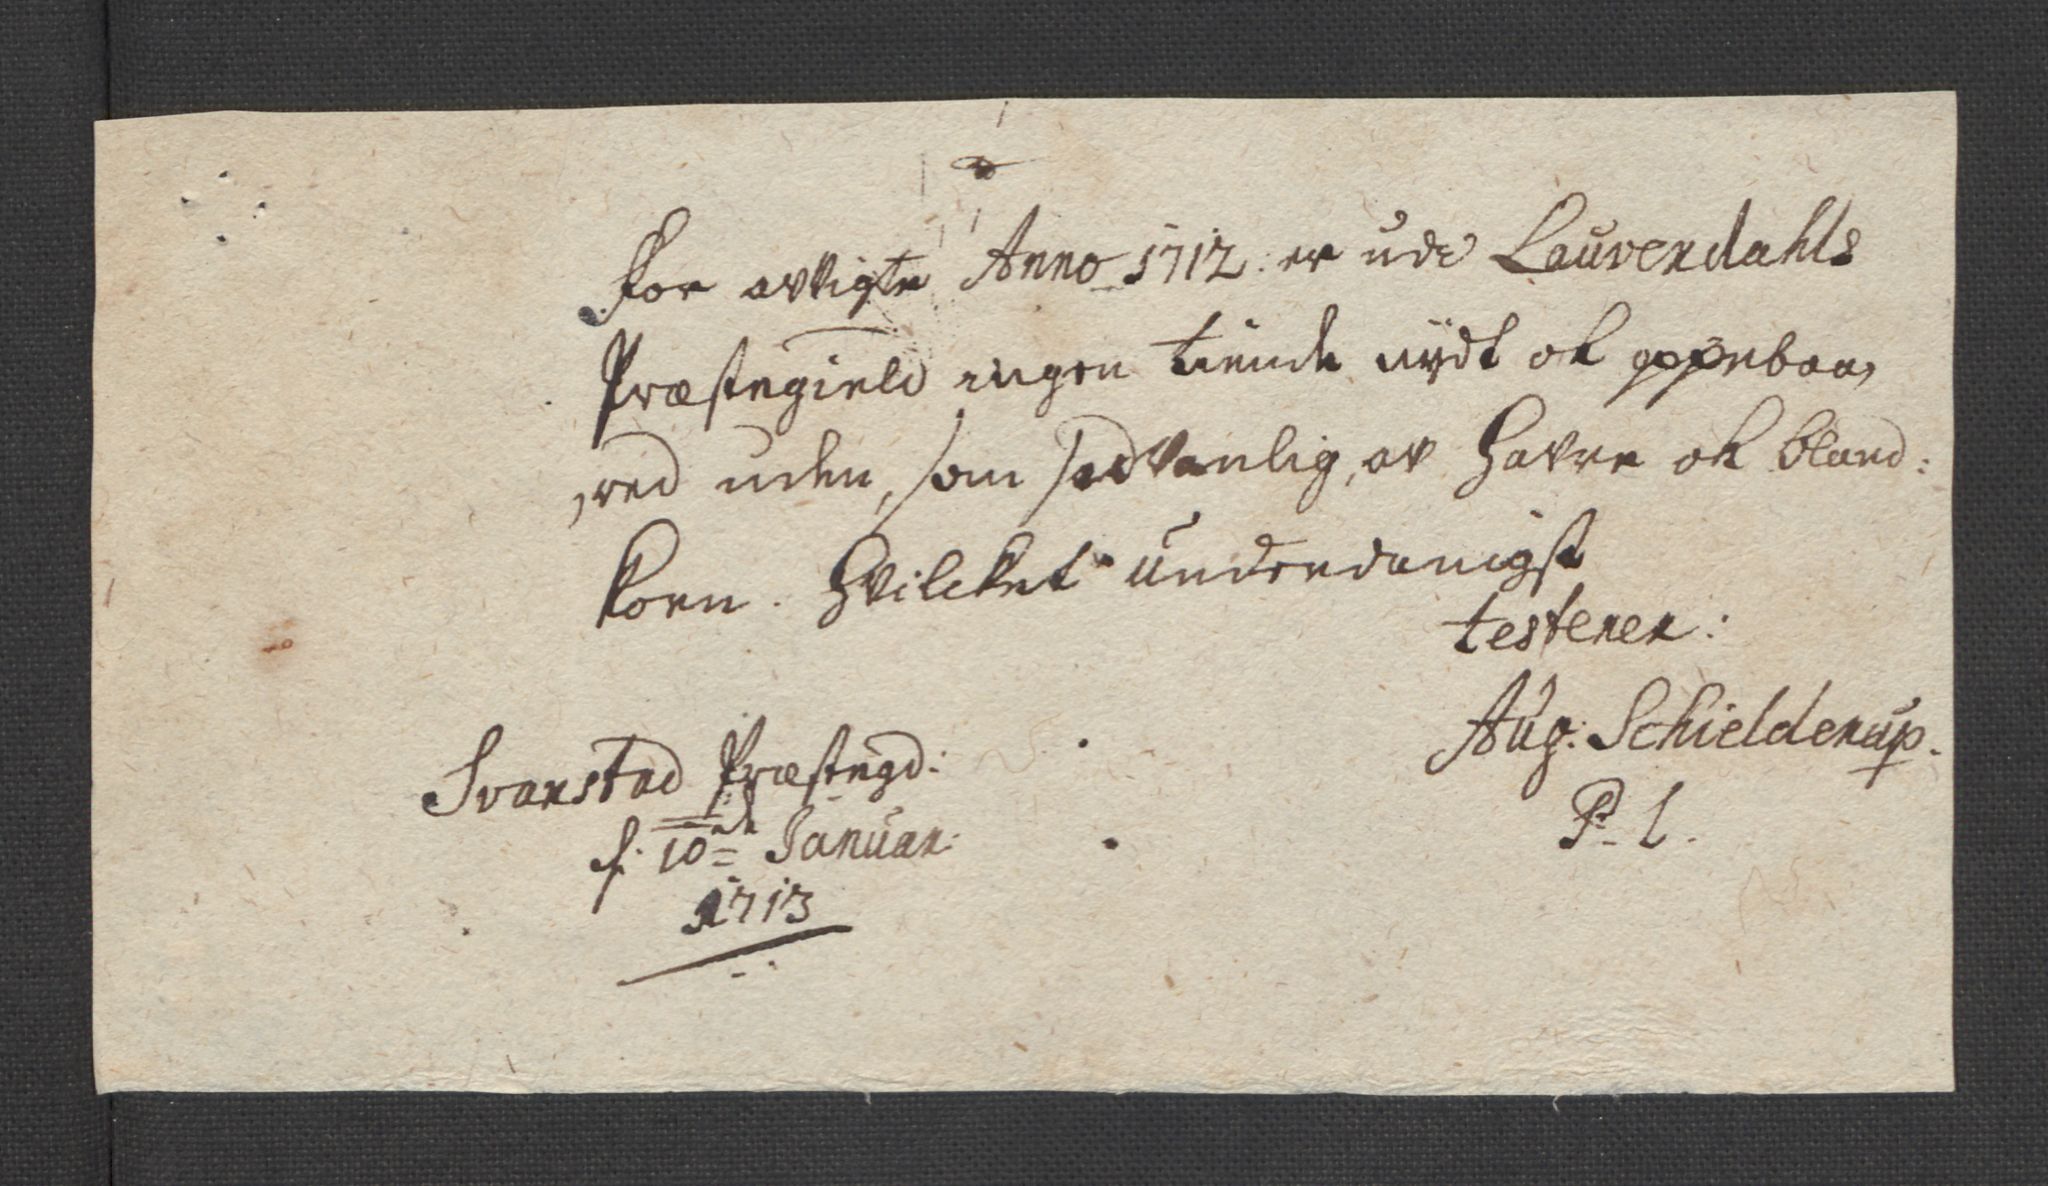 For avvigte Anno 1712 : er udi Laurerdahls
Præstegield ingen tiende nydt ok oppebaa,
,red uden, som sædvanlig, av Havre ok bland:
korn. Hvilcket underdanigst
testerer:
Aug: Schielderup.
P. l.
Svarstad Præstegd:
d. 10de Januar:
1713